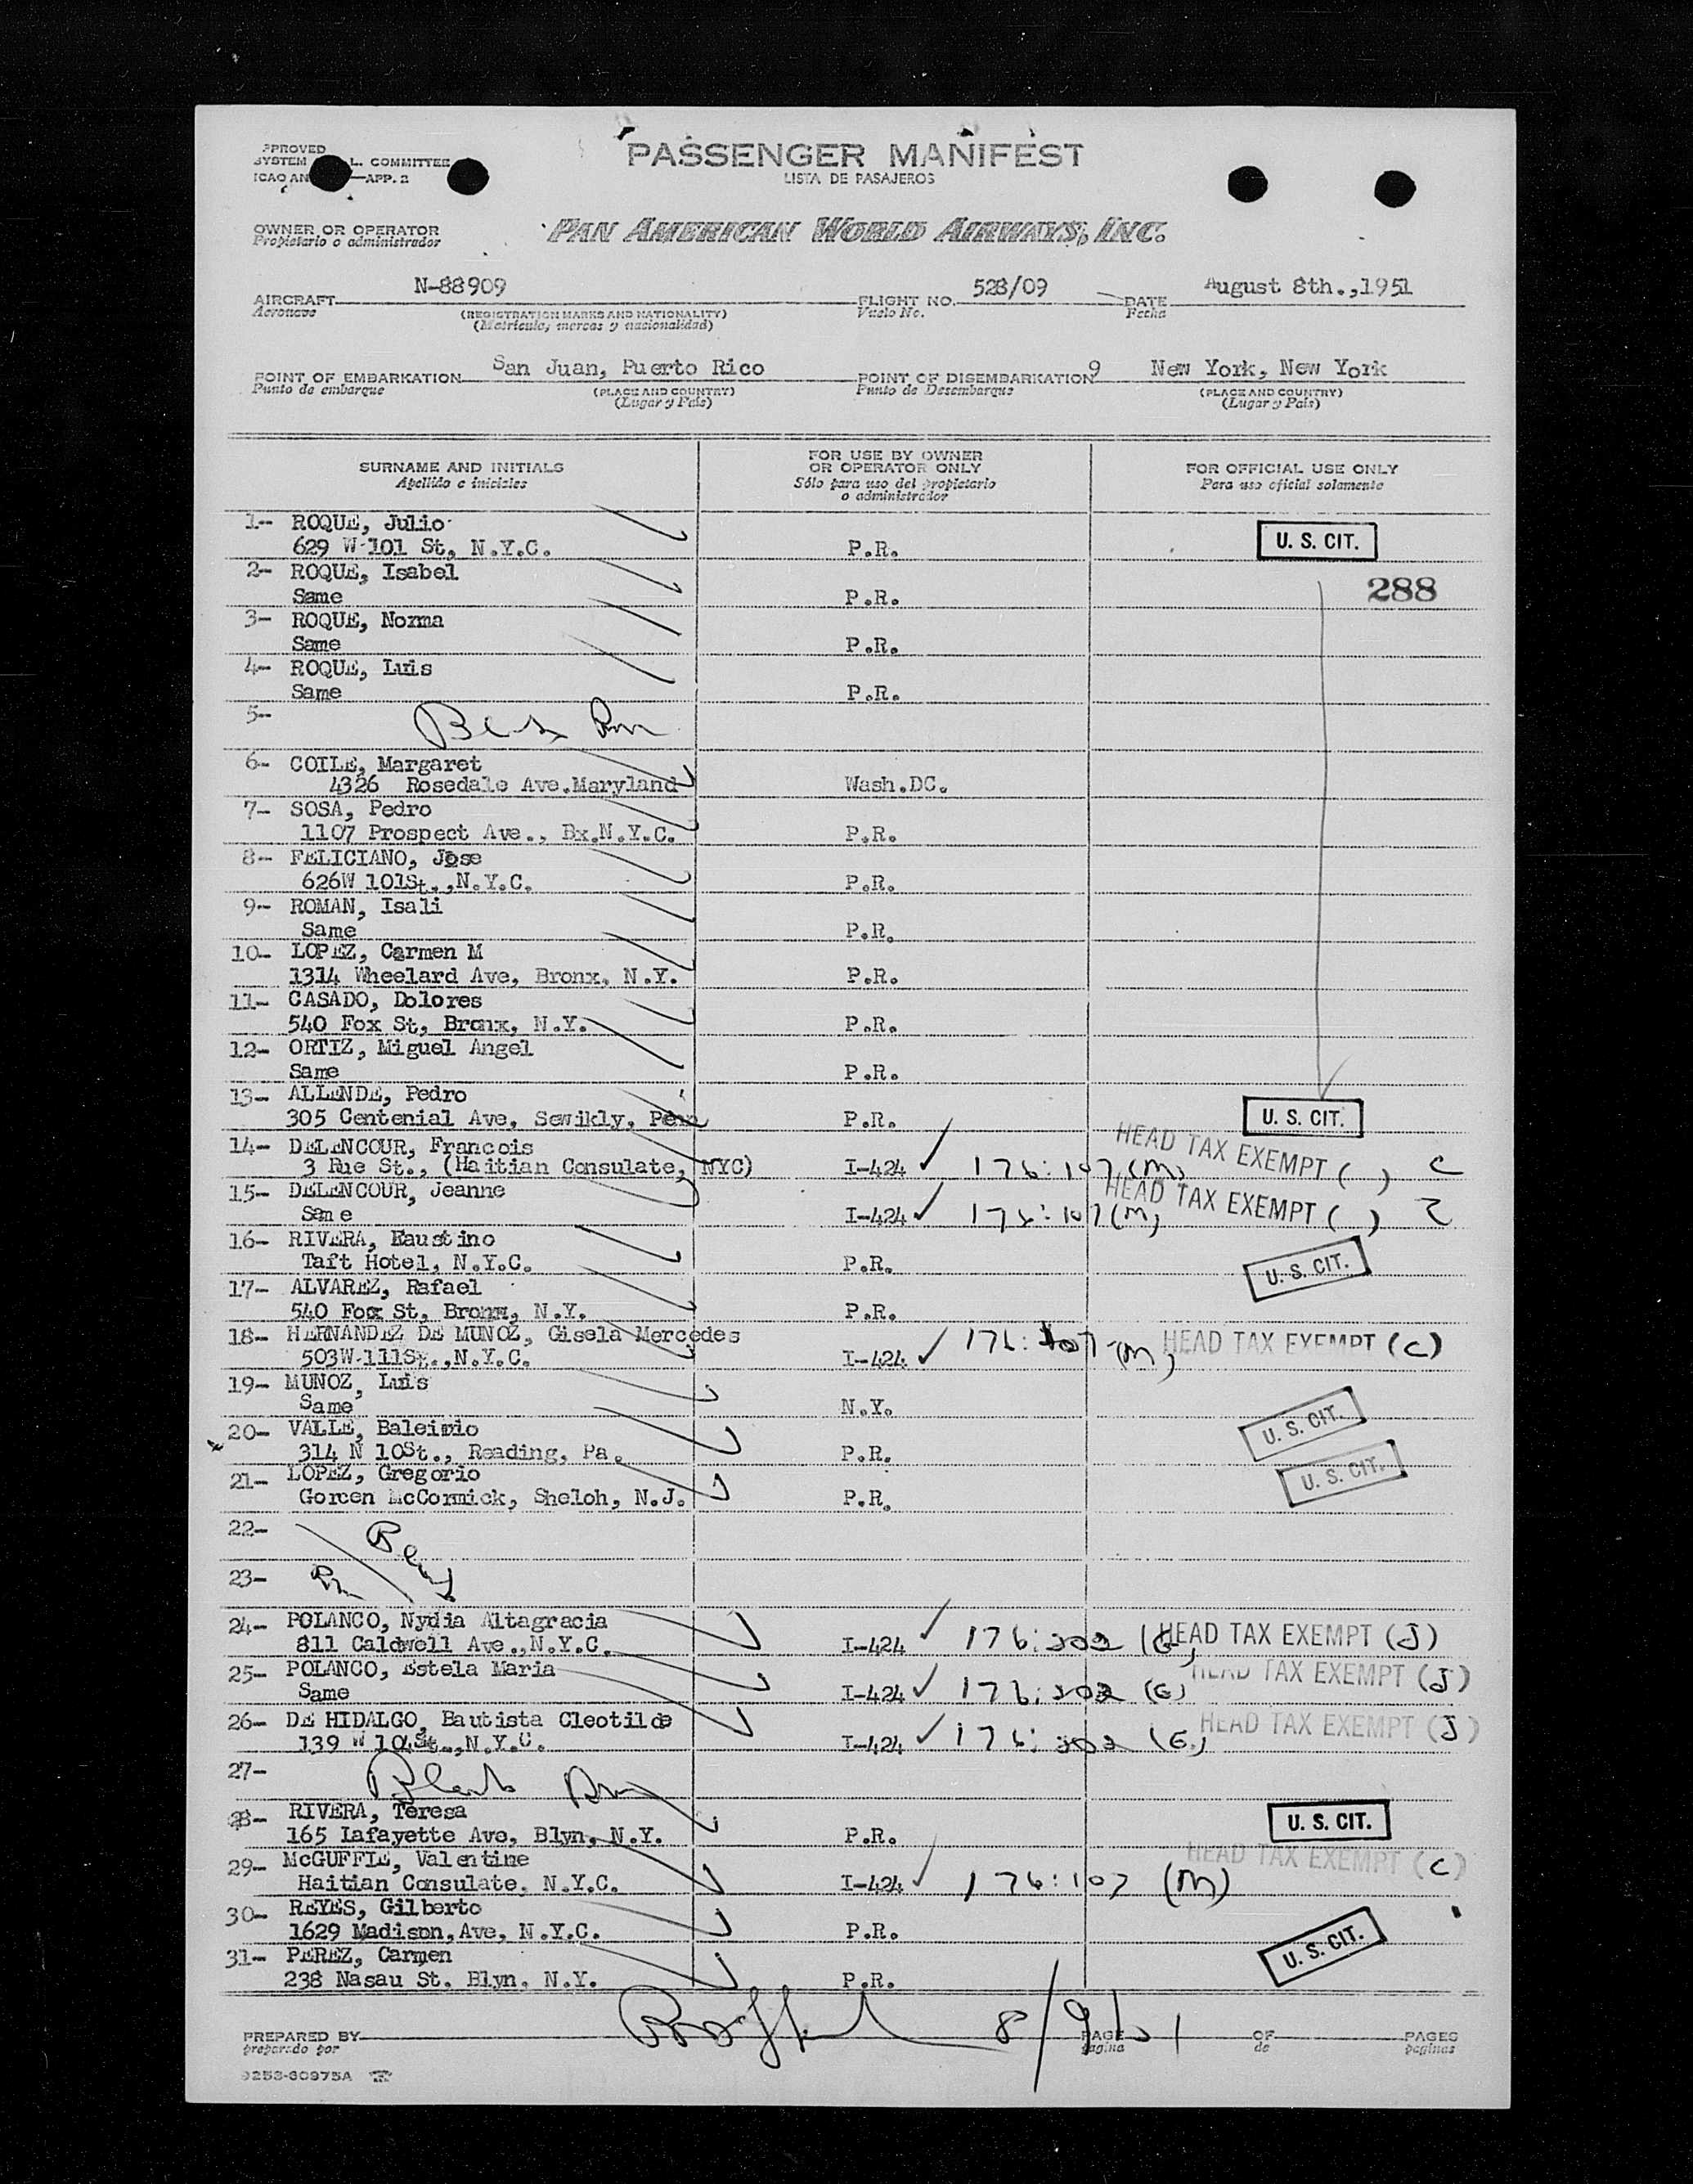 PASSENGER MANIFEST
LISTA DE PASAJEROS
PPROVED
SYSTEM L. COMMITTEE
ICAO AN —APP. 2
OWNER OR OPERATOR
Propietario o administrador
PAN AMERICAN WORLD AIRWAYS, INC.
AIRCRAFT N-88909 FLIGHT NO. 528/09 DATE August 8th.,1951
Aeronave (REGISTRATION MARKS AND NATIONALITY) Vuelo No. Fecha
(Matricula, marcas y nacionalidad)
POINT OF EMBARKATION San Juan, Puerto Rico POINT OF DISEMBARKATION 9 New York, New York
Punto de embarque (PLACE AND COUNTRY) Punto de Desembarque (PLACE AND COUNTRY)
(Lugar y País) (Lugar y País)
SURNAME AND INITIALS FOR USE BY OWNER OR OPERATOR ONLY FOR OFFICIAL USE ONLY
Apellido e iniciales Sólo para uso del propietario o administrador Para uso oficial solamente
1-- ROQUE, Julio
629 W-101 St, N.Y.C. P.R. U. S. CIT.
2- ROQUE, Isabel 288
Same P.R.
3- ROQUE, Norma
Same P.R.
4- ROQUE, Luis
Same P.R.
5--
6- COILE, Margaret
4326 Rosedale Ave.Maryland Wash.DC.
7- SOSA, Pedro
1107 Prospect Ave., Bx.N.Y.C. P.R.
8- FELICIANO, Jose
626W 101St.,N.Y.C. P.R.
9- ROMAN, Isali
Same P.R.
10- LOPEZ, Carmen M
1314 Wheelard Ave, Bronx, N.Y. P.R.
11- CASADO, Dolores
540 Fox St, Bronx, N.Y. P.R.
12- ORTIZ, Miguel Angel
Same P.R.
13- ALLENDE, Pedro
305 Centenial Ave, Sewikly, Penn P.R. U. S. CIT.
14- DELENCOUR, Francois
3 Rue St., (Haitian Consulate, NYC) I-424 176:107 (M) HEAD TAX EXEMPT ( ) C
15- DELENCOUR, Jeanne
Same I-424 176:107 (M) HEAD TAX EXEMPT ( ) C
16- RIVERA, Faustino
Taft Hotel, N.Y.C. P.R. U. S. CIT.
17- ALVAREZ, Rafael
540 Fox St, Bronx, N.Y. P.R.
18- HERNANDEZ DE MUNOZ, Gisela Mercedes
503W-111St.,N.Y.C. I-424 176:107 (M) HEAD TAX EXEMPT (C)
19- MUNOZ, Luis
Same N.Y.
20- VALLE, Baleirio U. S. CIT.
314 N 10St., Reading, Pa. P.R.
21- LOPEZ, Gregorio U. S. CIT.
Goreen McCormick, Sheloh, N.J. P.R.
22- Blank
23-
24- POLANCO, Nydia Altagracia
811 Caldwell Ave.,N.Y.C. I-424 176:202 (G) HEAD TAX EXEMPT (J)
25- POLANCO, Estela Maria
Same I-424 176:202 (G) HEAD TAX EXEMPT (J)
26- DE HIDALGO, Bautista Cleotilde
139 W 104St.,N.Y.C. I-424 176:202 (G) HEAD TAX EXEMPT (J)
27- Blank
28- RIVERA, Teresa
165 Lafayette Ave, Blyn, N.Y. P.R. U. S. CIT.
29- McGUFFIE, Valentine
Haitian Consulate, N.Y.C. I-424 176:107 (M) HEAD TAX EXEMPT (C)
30- REYES, Gilberto
1629 Madison, Ave, N.Y.C. P.R.
31- PEREZ, Carmen U. S. CIT.
238 Nasau St. Blyn, N.Y. P.R.
PREPARED BY 8/9/51 PAGE OF PAGES
preparado por pagina de paginas
9253-60975A